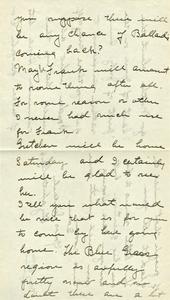 you suppose there will
be any chance of Ballard
coming back?
Maybe Frank will amount
to something after all.
For some reason or other
I never had much use
for Frank.
Gretchen will be home
Saturday, and I certainly
will be glad to see
her.
I tell you what would
be nice that is for you
to come by here going
home. The Blue Grass
region is awfully
pretty now and no
doubt there are a lot